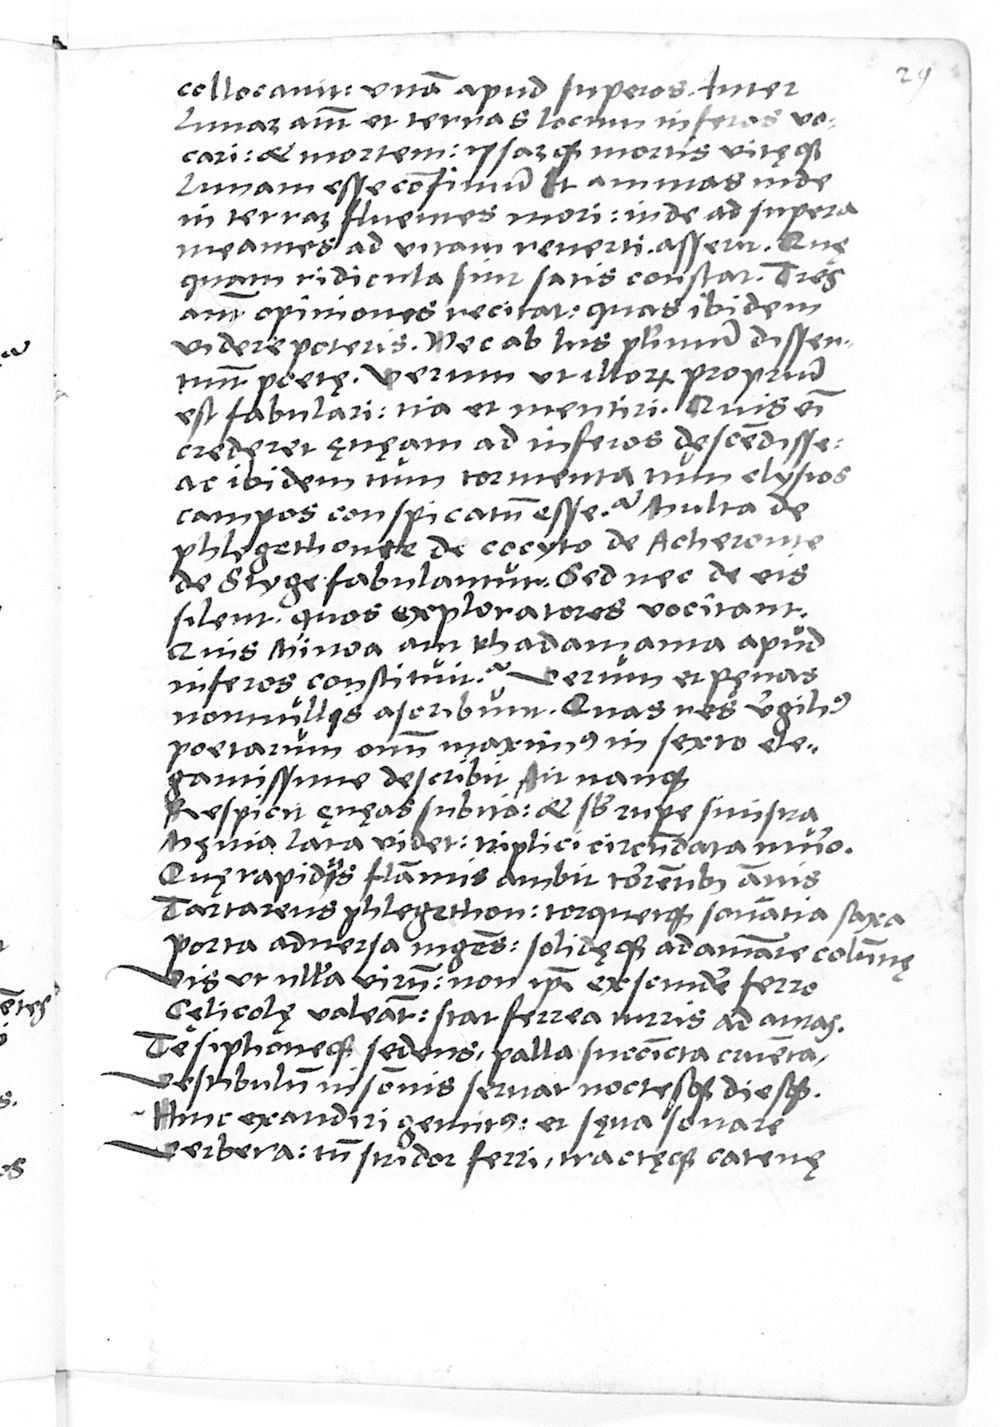 29
collocauit: vnā apud superos. Inter
Lunaꝫ aūt et terras locum inferos vo-
cari: & mortem: ipsaꝫqꝫ mortis vitęqꝫ
Lunam esse cōfiniū Et animas inde
in terraꝫ fluentes mori: inde ad supera
meantes ad vitam reuerti. asserit. Quę
quam ridicula sint satis constat. Tres
aūt opiniones recitat: quas ibidem
videre poteris. Nec ab his plimū dissen-
tiūt poetę. Verum vt illoꝝ propriū
est fabulari: ita et mentiri. Quis eī
crederet ęnęam ad inferos descēdisse:
ac ibidem tum tormenta tum elysios
campos conspicatū esse.? Multa de
phlegethonte de cocyto de Acheronte
de Styge fabulantur. Sed nec de eis
silent. quos exploratores vocitant.
Quis Minoa aut Rhadamanta apud
inferos constituit.? Verum et pęnas
nonnullis ascribunt. Quas res Vgiliꝰ
poetarum oīm maximꝰ in sexto ele-
gantissime describit Ait nanqꝫ
Respicit ęnęas subito: & sb rupe sinistra
Męnia lata videt: triplici circūdata muro.
Quę rapidis flāmis ambit torrentibꝫ āmis
Tartareus phlegethon: torquetqꝫ sonātia saxa
Porta aduersa ingēs: solidęqꝫ adamāte colūnę
Vis vt nlła virū: non ipī exscindere ferro
Cęlicolę valeāt: stat ferrea turris ad auras.
Tesiphoneqꝫ sedens, palla succīcta cruēta,
Vestibulū insōnis seruat noctesqꝫ diesqꝫ.
Hinc exaudiri gemitꝰ: et sęua sonare
Verbera: tū stridor ferri, tractęqꝫ catenę